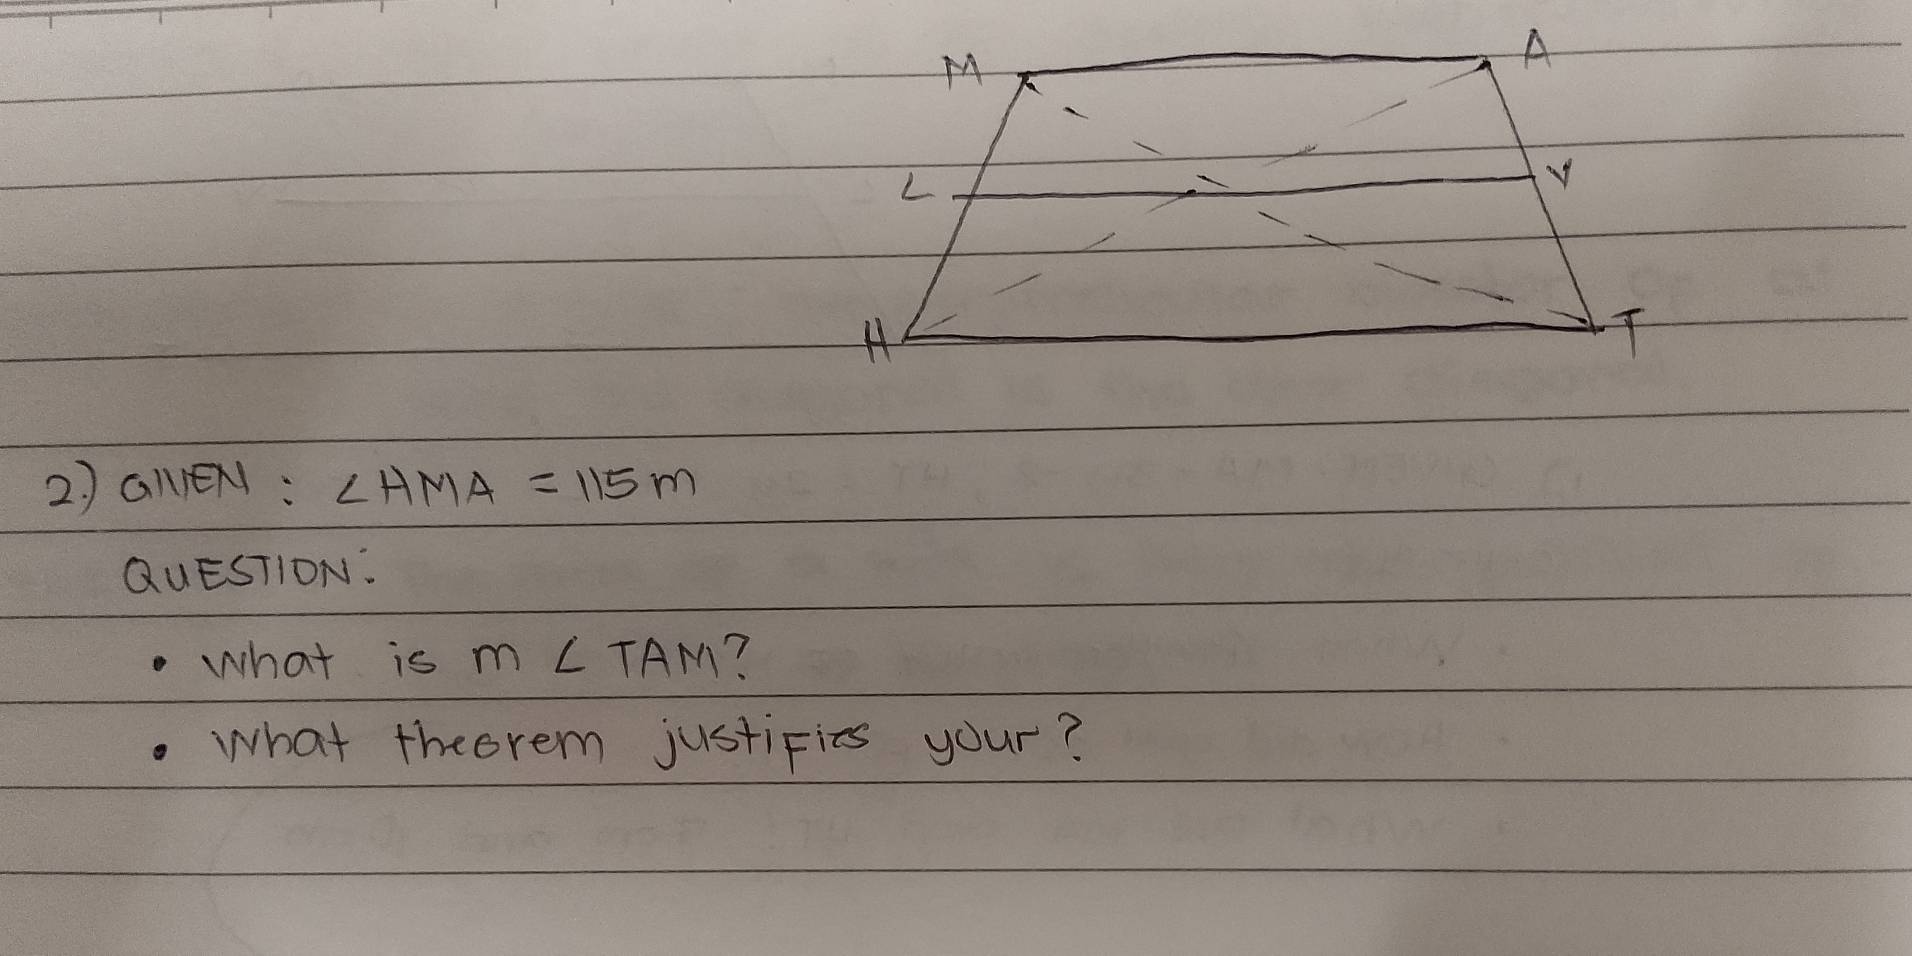 M A
L V
H T
2.) GIVEN : ∠HMA = 115m
QUESTION:
• What is m ∠ TAM?
• What theorem justifies your?